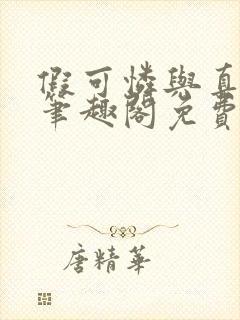 假可憐與真
筆趣閣免費
唐精華